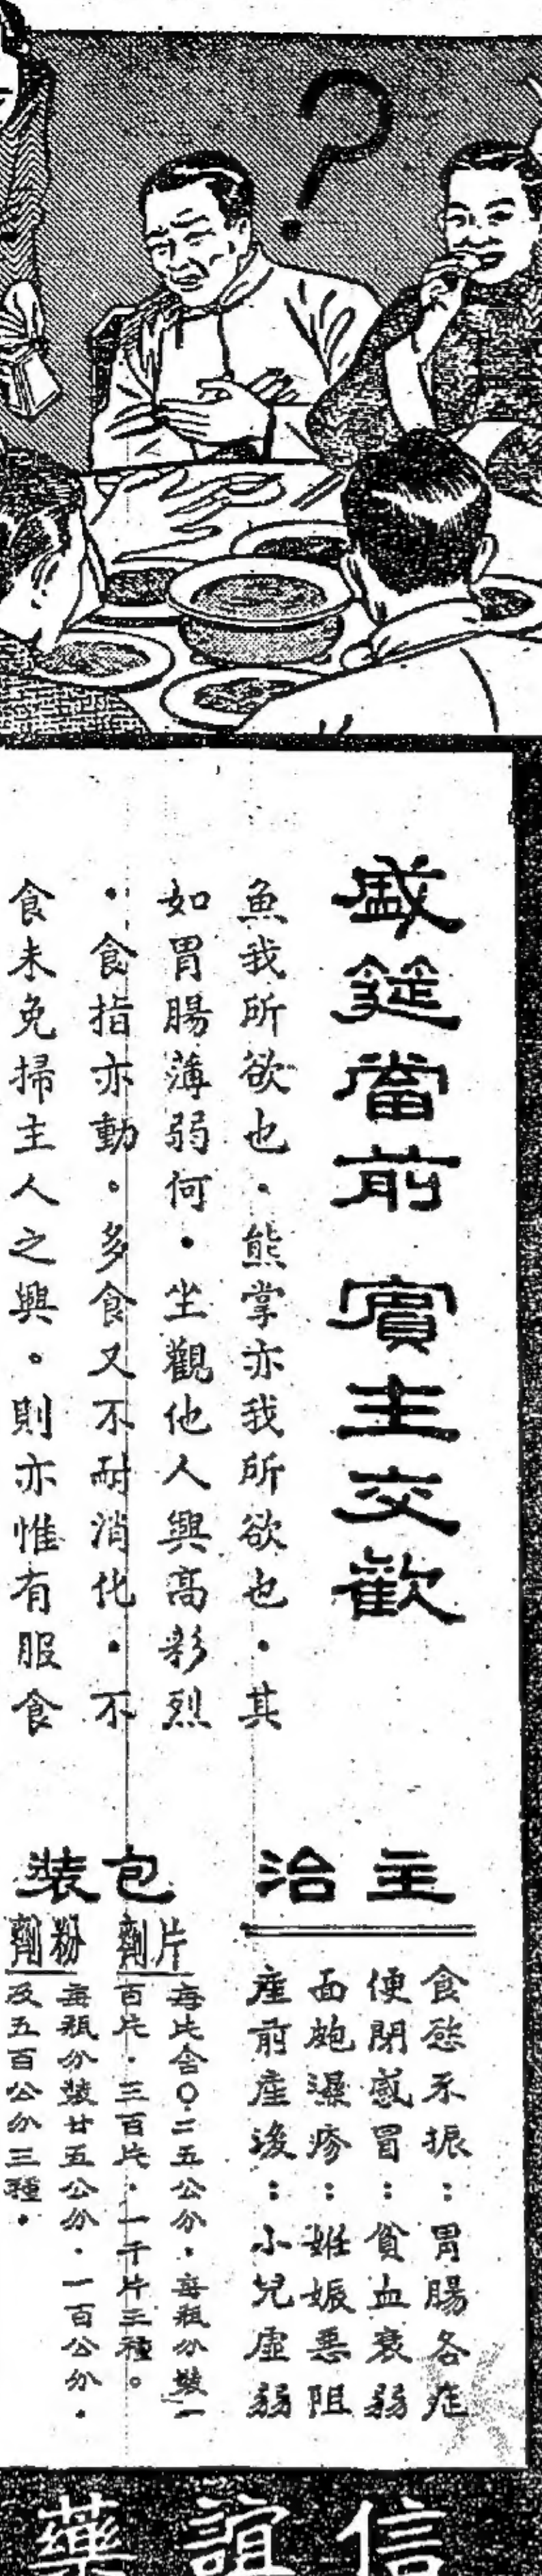 ?
盛筵當前 賓主交歡
魚我所欲也·熊掌亦我所欲也·其
如胃腸薄弱何·坐觀他人興高彩烈
·食指亦動。多食又不耐消化·不
食未免掃主人之興。則亦惟有服食
主治
食慾不振：胃腸各症
便閉感冒：貧血衰弱
面皰濕疹：姙娠惡阻
產前產後：小兒虛弱
包裝
片劑
每片含〇·二五公分·每瓶分裝一
百片·三百片·一千片三種。
粉劑
每瓶分裝廿五公分·一百公分·
及五百公分三種·
信誼藥